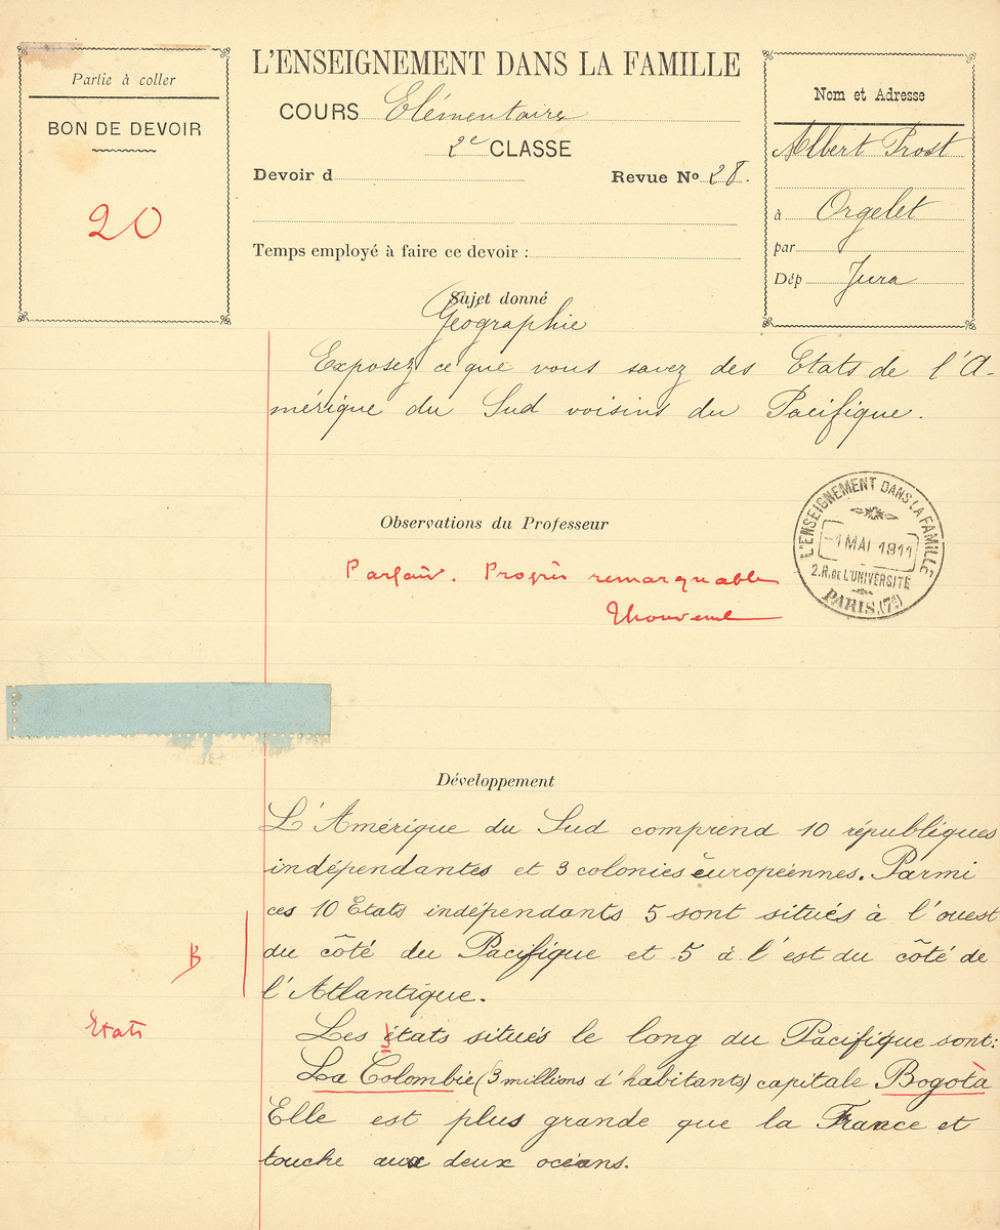 Partie à coller
BON DE DEVOIR
20
L'ENSEIGNEMENT DANS LA FAMILLE
COURS Elémentaire
2e CLASSE
Devoir d
Revue No 28.
Temps employé à faire ce devoir :
Nom et Adresse
Albert Prost
à Orgelet
par
Dép Jura
Sujet donné
Géographie
Exposez ce que vous savez des Etats de l'A-
mérique du Sud voisins du Pacifique.
L'ENSEIGNEMENT DANS LA FAMILLE
-1 MAI 1911
2.R. DE L'UNIVERSITÉ
PARIS.(7e)
Observations du Professeur
Parfait. Progrès remarquable
Développement
L'Amérique du Sud comprend 10 républiques
indépendantes et 3 colonies européennes. Parmi
ces 10 Etats indépendants 5 sont situés à l'ouest
B
du côté du Pacifique et 5 à l'est du côté de
l'Atlantique.
Etats
Les états situés le long du Pacifique sont:
La Colombie (3 millions d'habitants) capitale Bogotà
Elle est plus grande que la France et
touche aux deux océans.